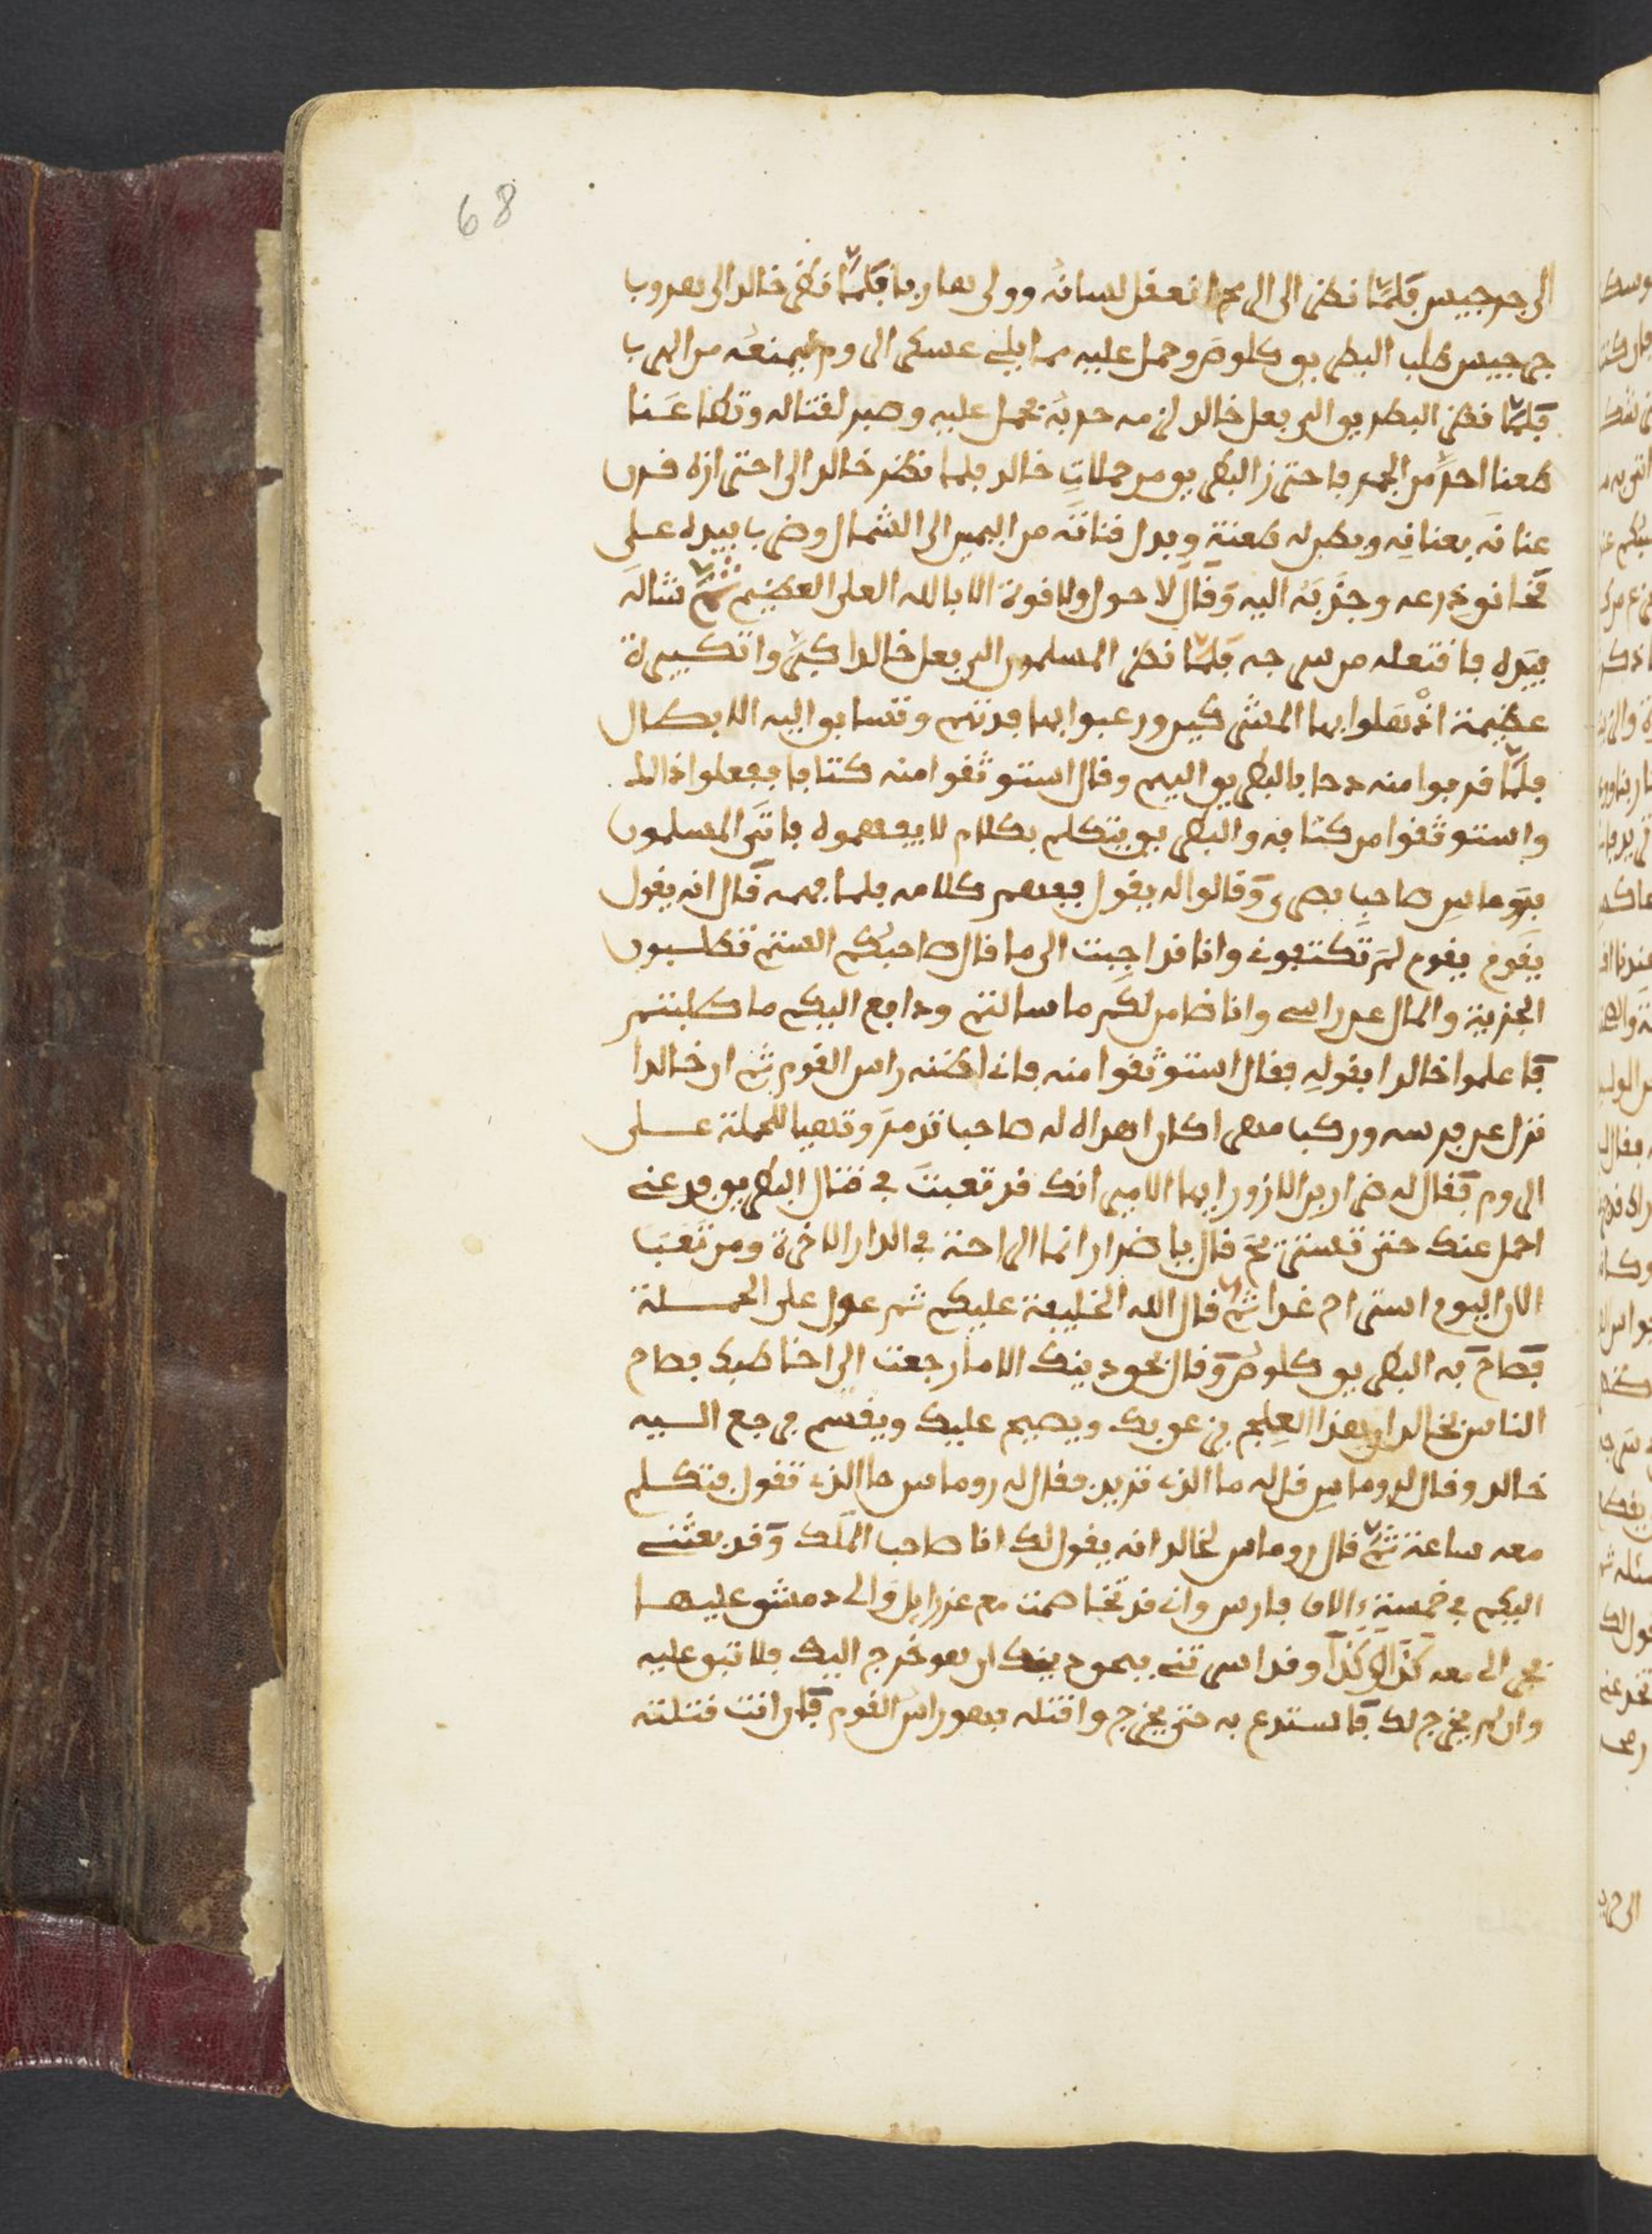 68
الى جرجيس فلما نظر الى الرمح انعقل لسانه وولى هاربا فلما نظر خالد الى هروب
جرجيس طلب البطريق كلوص وحمل عليه مما يلى عسكر الروم ليمنعه من الهرب
فلما نظر البطريق الى فعل خالد لزمه حربه فحمل عليه وصبر لقتاله وتطاعنا
طعنا احر من الجمر فاحترز البطريق من حملات خالد فلما نظر خالد الى احترازه قرن
عنانه بعنانه وبطل له طعنته وبدل قناته من اليمين الى الشمال وضرب بيده على
مخانق درعه وجذبه اليه وقال لا حول ولا قوة الا بالله العلى العظيم ثم شاله
بيده فاقتعله من سرجه فلما نظر المسلمون الى فعل خالد اكبروا تكبيرة
عظيمة اذهلوا بها المشركين ورعبوا بها افئدتهم وتسابقوا اليه الابطال
فلما قربوا منه دحا بالبطريق اليهم وقال استوثقوا منه كتافا ففعلوا ذالك
واستوثقوا من كتافه والبطريق يتكلم بكلام لا يفهموه فاتى المسلمون
بروماس صاحب بصرى وقالوا له يقول ففهم كلامه فلما فهمه قال انه يقول
يقوم يقوم لم تكتفونى وانا قد اجبت الى ما قال صاحبكم الستم تطلبون
الجزية والمال عن راسى وانا ضامن لكم ما سالتم ودافع اليكم ما طلبتم
فاعلموا خالدا بقوله فقال استوثقوا منه فانى اظنه راس القوم ثم ان خالدا
نزل عن فرسه وركب مهرا كان اهداه له صاحب تدمر وتهيا للحملة على
الروم فقال له ضرار بن الازور ايها الامير انك قد تعبت فى قتال البطريق فدعنى
احمل عنك حتى تستريح قال يا ضرار انما الراحة فى الدار الاخرة ومن تعب
الان اليوم استراح غدا ثم قال الله الخليفة عليكم ثم عول على الحملة
فصاح به البطريق كلوص وقال بحق دينك الا ما رجعت الى اخاطبك فصاح
الناس لخالد ان هذا العلج يزعق بك ويصيح عليك ويقسم فرجع اليه
خالد وقال لروماس قل له ما الذى تريد فقال له روماس ما الذى تقول فتكلم
معه ساعة ثم قال روماس لخالد انه يقول لك انا صاحب الملك وقد بعثنى
اليكم فى خمسة ءالاف فارس وانى قد تخاصمت مع عزرايل والى دمشق عليها
جرى لى معه كذا وكذا وقد اسرتنى فبحق دينك ان هو خرج اليك فلا تبق عليه
وان لم يخرج لك فاستدع به حتى يخرج واقتله فهو راس القوم فان انت قتلته